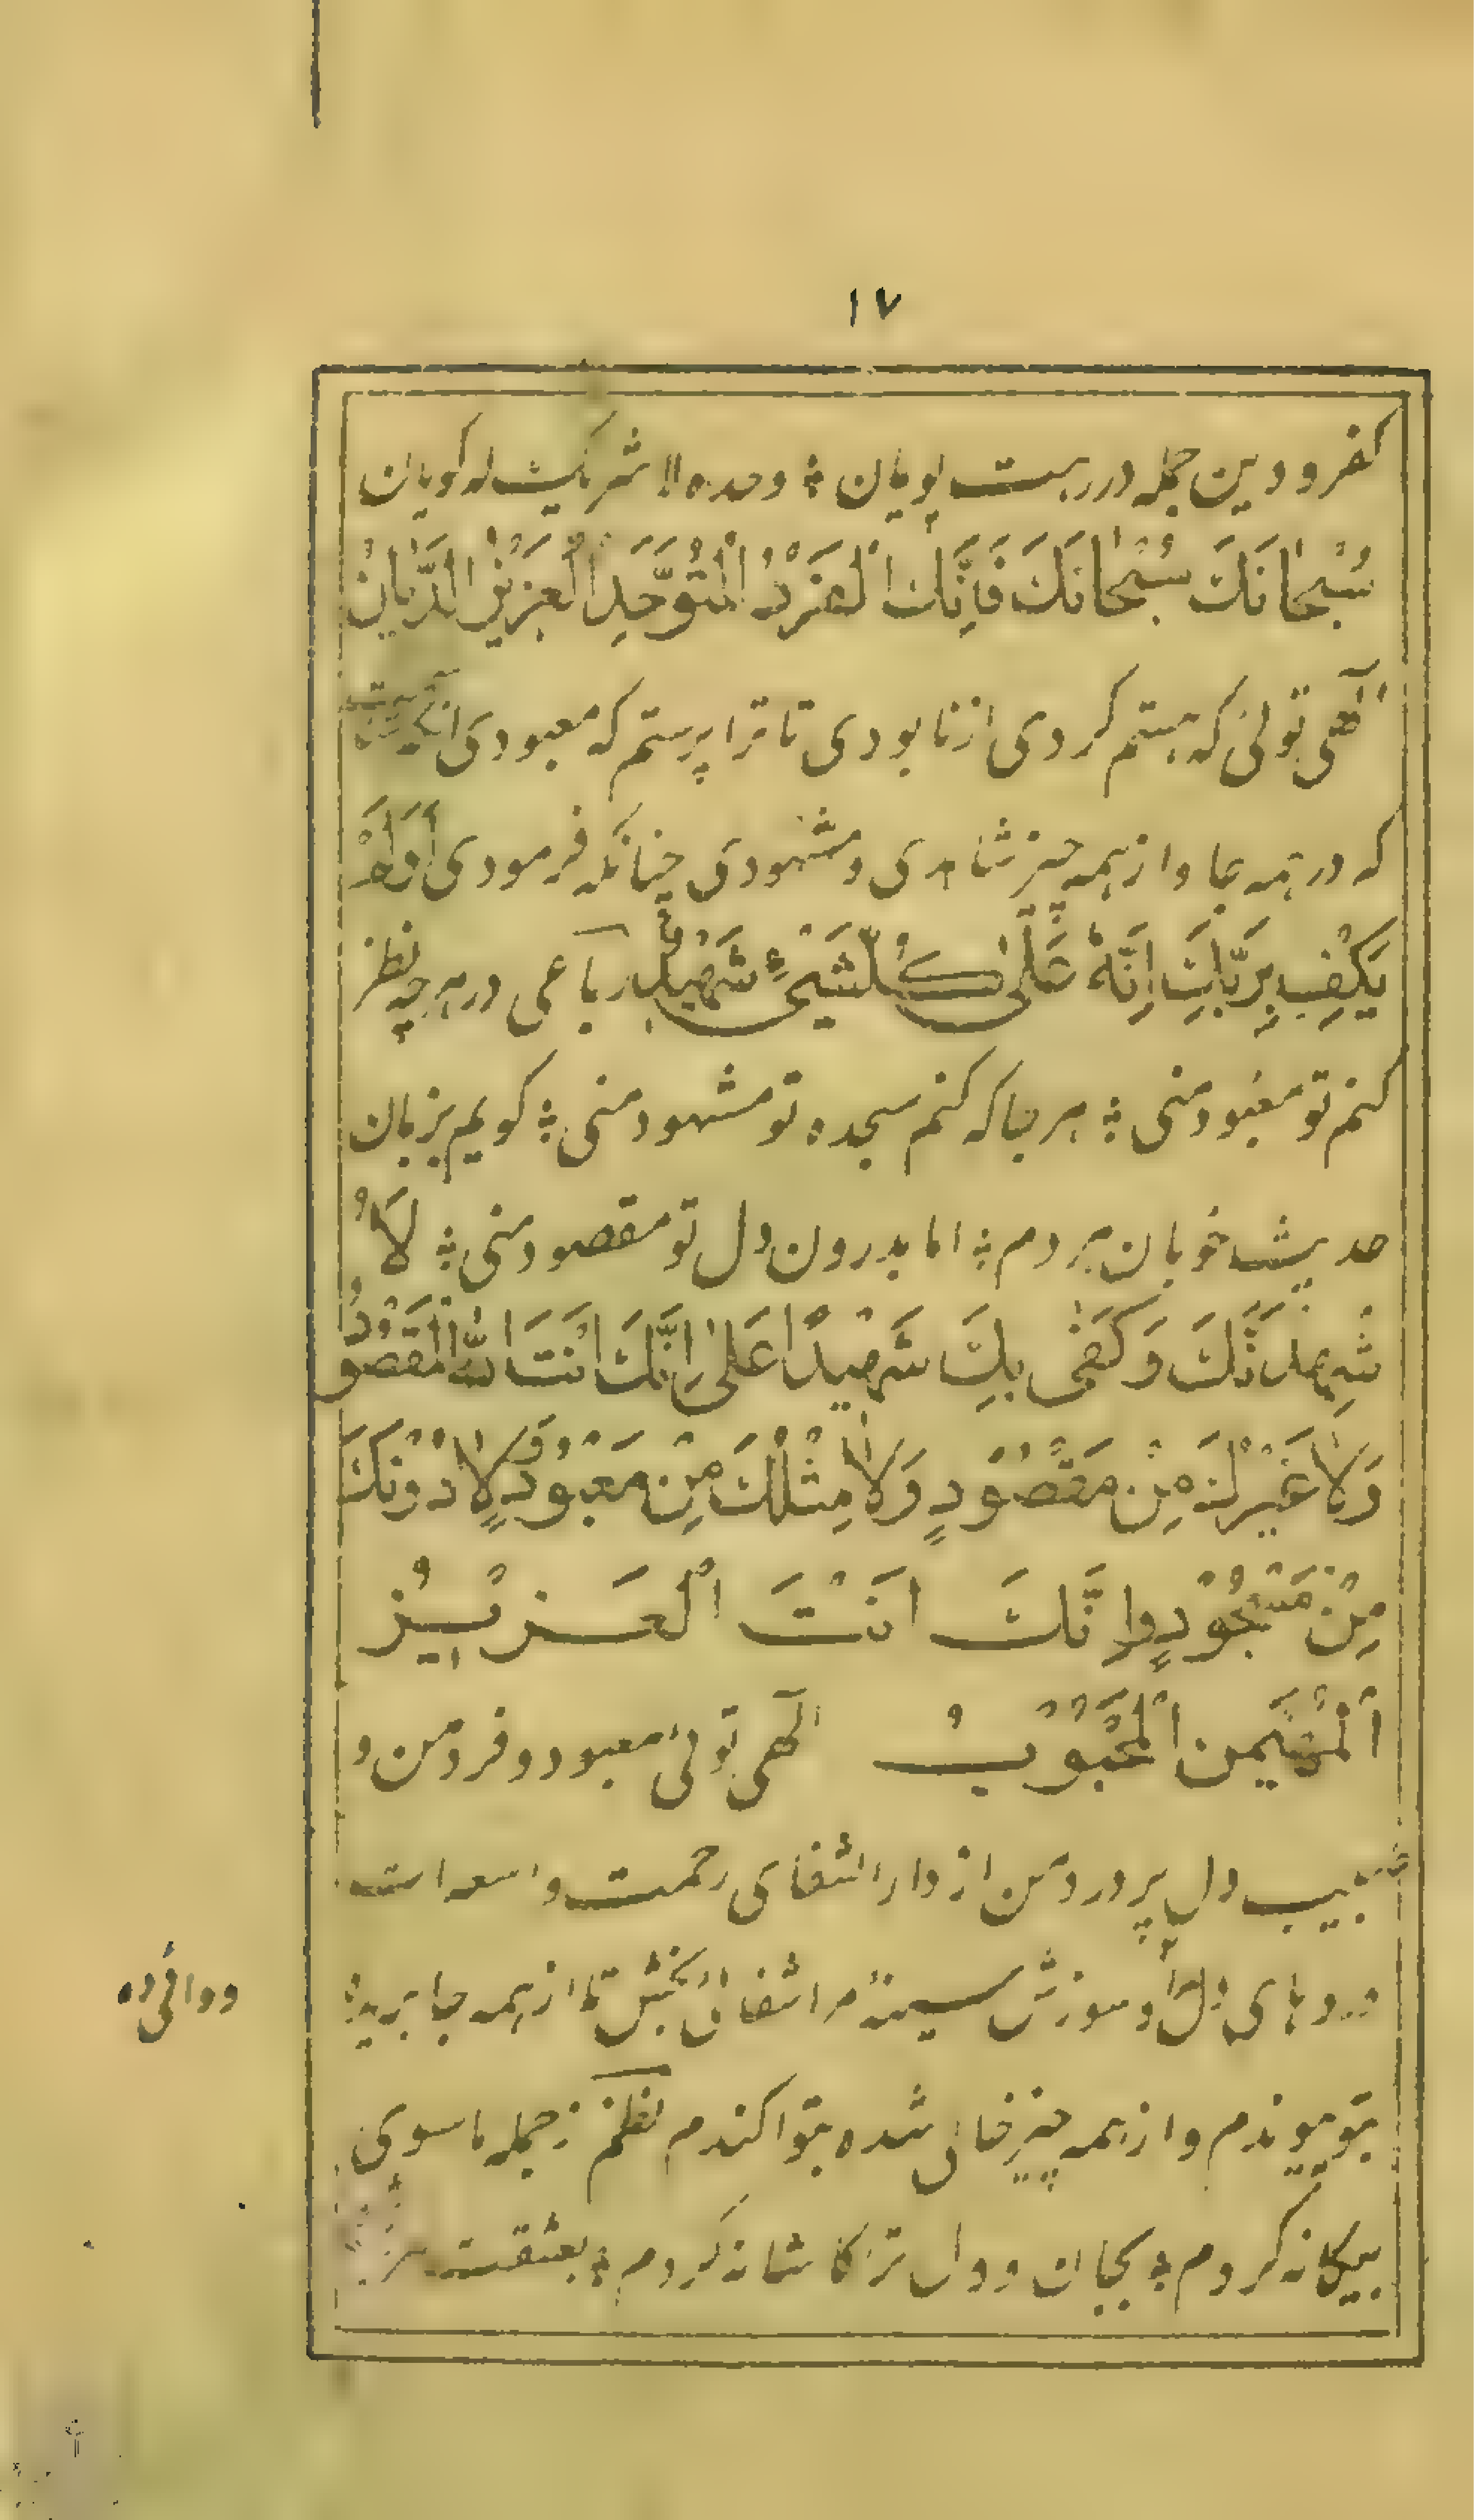 ۱۷
کفر و دین جمله در رہت پویان ؞ وحده لا شریک له گویان
سُبْحَانَكَ سُبْحَانَكَ فَاِنَّكَ الْفَرْدُ الْمُتَوَحِّدُ الْعَزِیْزُ الدَّیَّانُ
الٓهی توئی که هستم کردی از نابودی تا ترا پرستم که معبودی
که در همه جا و از همه چیز شاهدی و مشهودی چنانکه فرمودی اَوَلَمْ
یَکْفِ بِرَبِّكَ اِنَّهٗ عَلٰی کُلِّ شَیْءٍ شَهِیْدٌ رباعی در هر چه نظر
کنم تو معبود منی ؞ هر جا که کنم سجده تو مشهود منی ؞ گویم بزبان
حدیث خوبان مردم ؞ اما بدرون دل تو مقصود منی ؞ لَا
وَكَفٰی بِكَ شَهِیْدًا عَلٰی اِنَّكَ اَنْتَ اللّٰهُ الْمَقْصُوْدُ
وَلَا غَیْرَكَ مِنْ مَقْصُوْدٍ وَلَا مِثْلُكَ مِنْ مَعْبُوْدٍ وَلَا دُوْنَكَ
مِنْ مَسْجُوْدٍ اِنَّكَ اَنْتَ الْعَزِیْزُ
اَلْمُهَیْمِنُ الْمَحْبُوْبُ الٓهی توئی معبود و فرد من و
طبیب دل پر درد من از دار الشفای رحمت واسعه ات
دردهای دل و سوزش سینهٔ مرا شفائی بخش تا از همه جا بریده
بتو پیوندم و از همه چیز فانی شده بتو اکندم نظم ز جمله ماسوی
بیگانه کردم ؞ بجان و دل ترا کاشانه کردم ؞ بعشقت